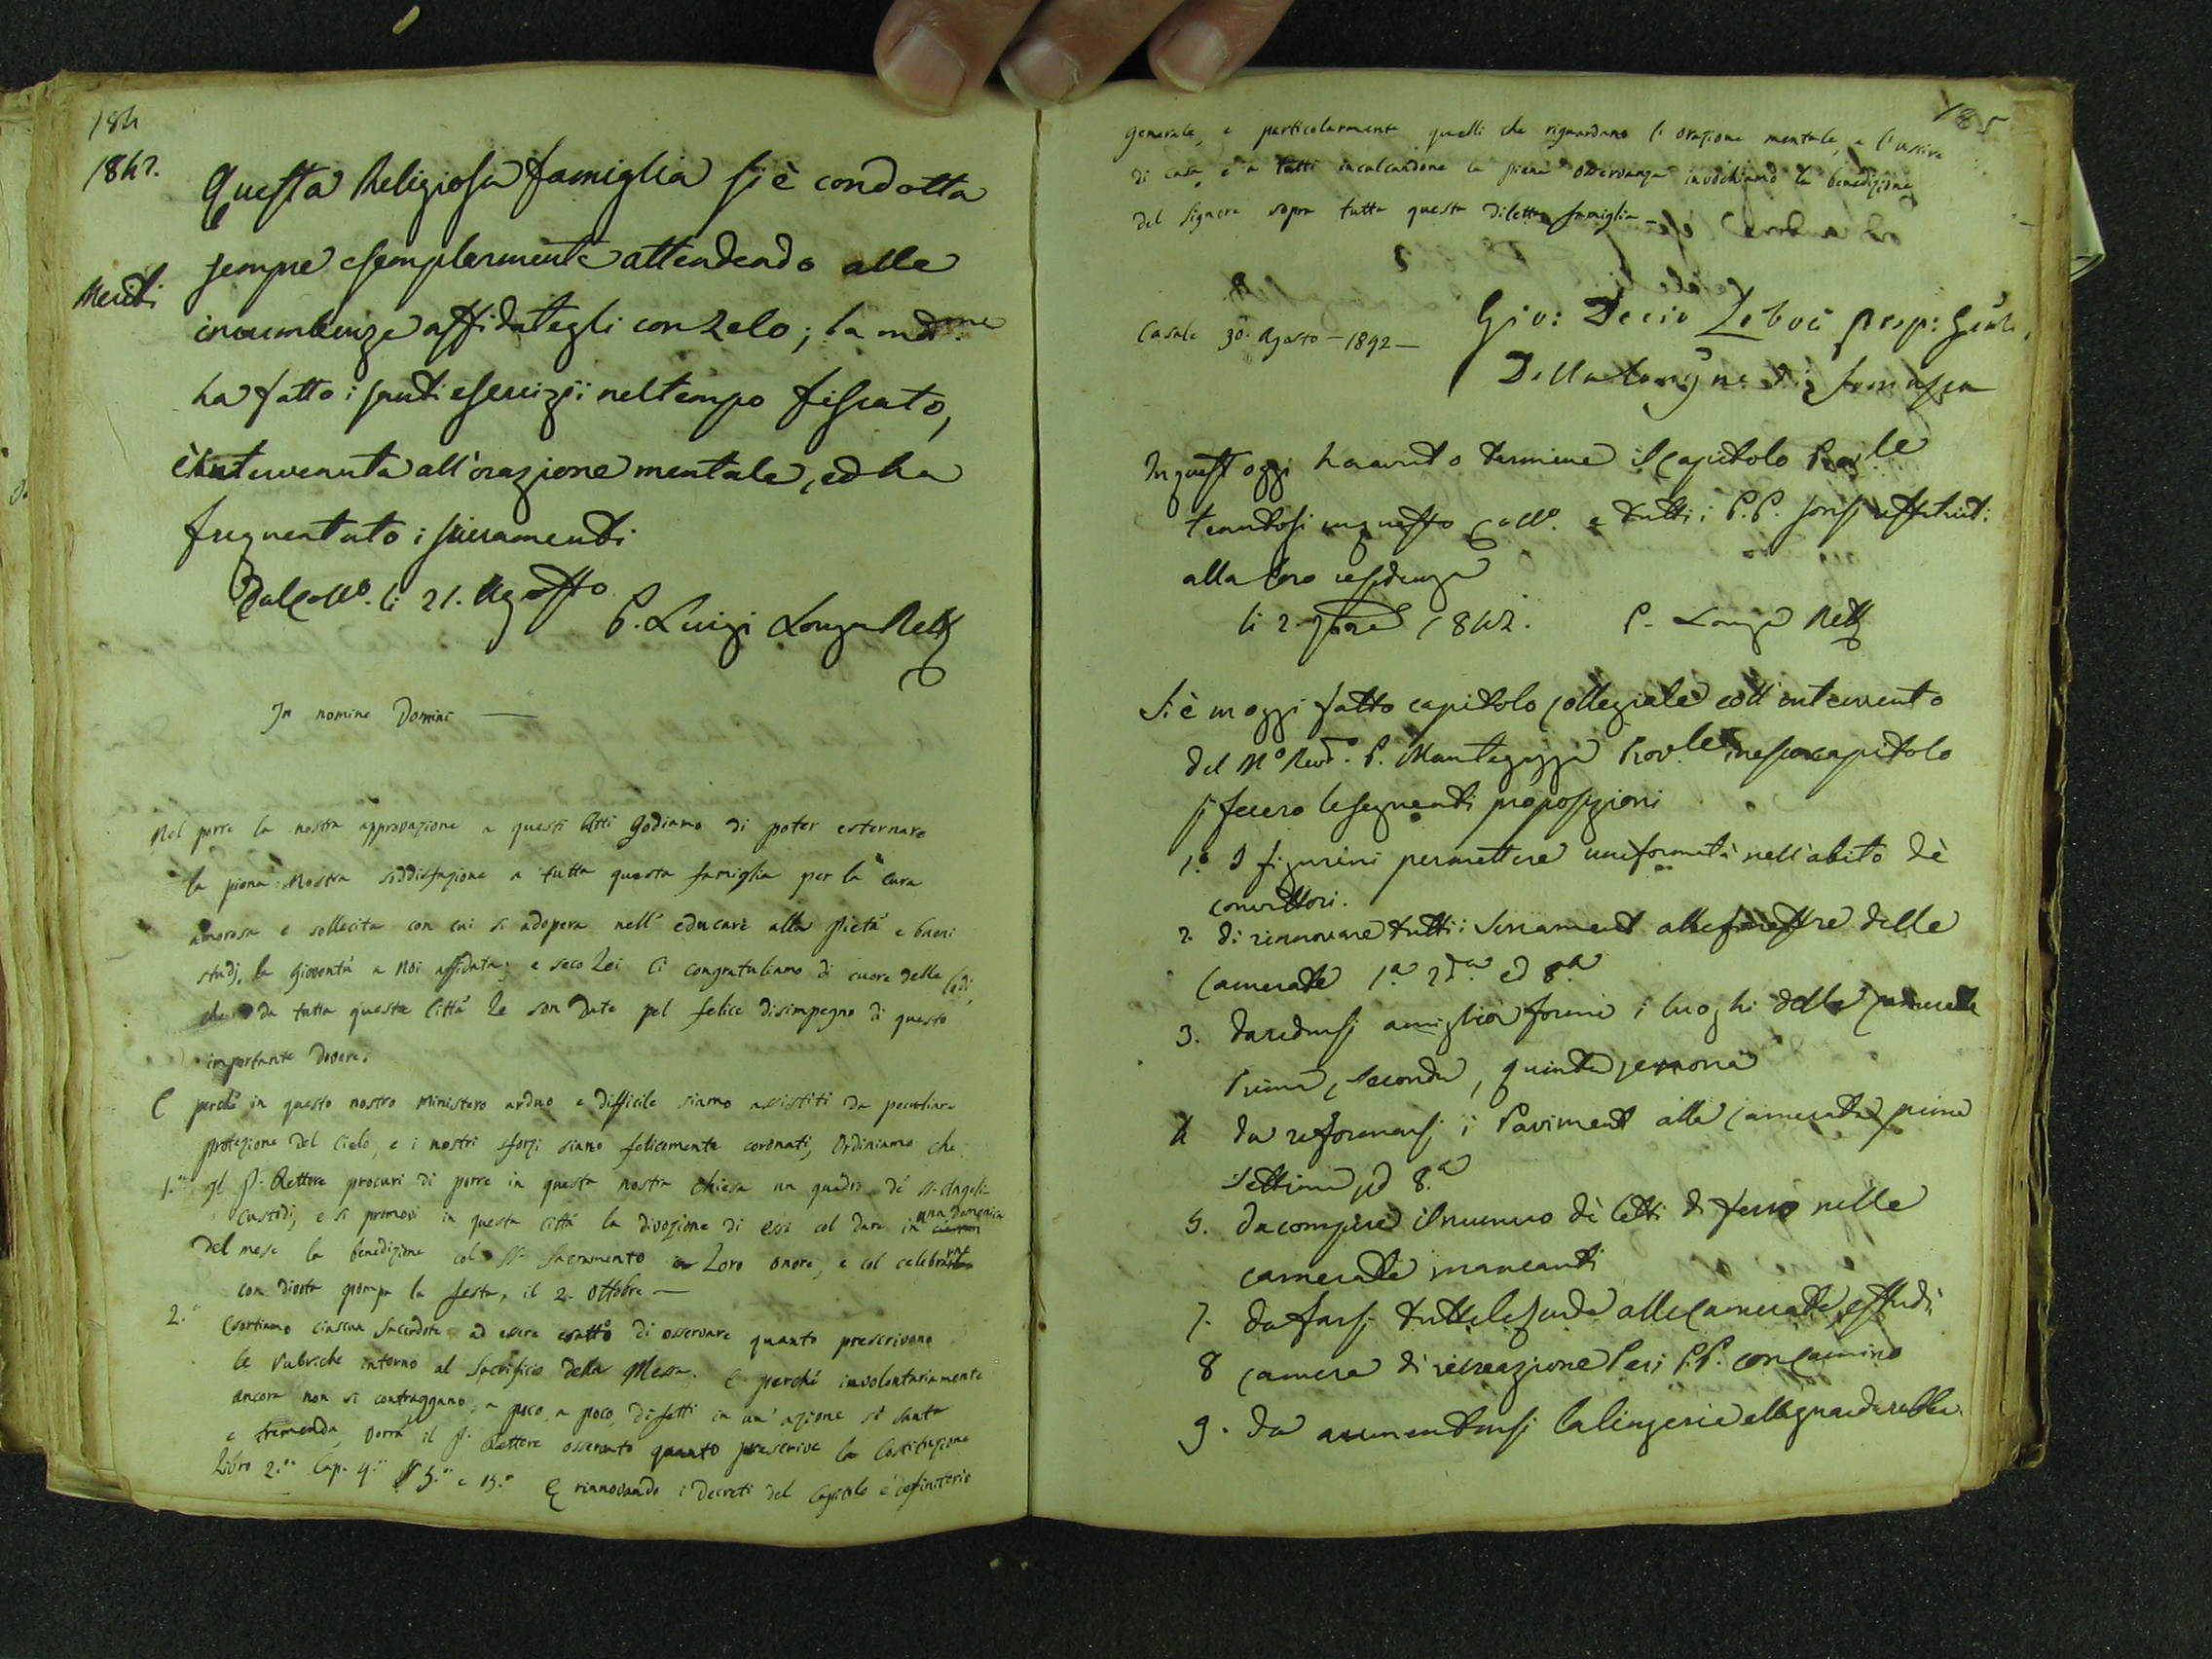 184
1842.
Questa Religiosa famiglia si è condotta
sempre esemplarmente attendendo alle
Meriti
incumbenze affidategli con Zelo; la md.me
ha fatto i santi esercizii nel tempo fissato,
è intervenuta all'orazione mentale, ed ha
frequentato i sacramenti
Dal Coll.o li 21. Agosto
P. Luigi Longa Rett
In nomine Domini —
Nel porre la nostra approvazione a questi Atti godiamo di poter esternare
la piena Nostra soddisfazione a tutta questa famiglia per la cura
amorosa e sollecita con cui si adopera nell' educare alla pietà e buoni
studj, la Gioventù a Noi affidata; e seco Lei Ci congratuliamo di cuore delle lodi,
che da tutta questa Città Le son date pel felice disimpegno di questo
importante dovere.
E perchè in questo nostro Ministero arduo e difficile siamo assistiti da peculiare
protezione del Cielo, e i nostri sforzi siano felicemente coronati, Ordiniamo che
1.° Il P. Rettore procuri di porre in questa nostra Chiesa un quadro de' SS. Angeli
Custodi, e si promovi in questa città la divozione di essi col dare in una domenica
del mese la benedizione col SS. Sacramento in Loro onore, e col celebrare
con divota pompa la festa, il 2. Ottobre —
2.° Esortiamo ciascun Sacerdote ad essere esatto di osservare quanto prescrivono
le Rubriche intorno al Sacrificio della Messa. E perchè involontariamente
ancora non si contraggano, a poco, a poco, difetti in un' azione sì santa
e tremenda, vorrà il P. Rettore osservato quanto prescrive la Costituzione
Libro 2.° Cap. 4.° § 5.° e 15.° E rinnovando i Decreti del Capitolo e definitorio
185
generale, e particolarmente quelli che riguardano l' orazione mentale, e l'uscire
di casa, e a tutti inculcandone la piena osservanza invochiamo la benedizione
del Signore sopra tutta questa diletta famiglia —
Casale 30. Agosto — 1842 —
Gio: Decio Libois Prep: Genle.
Della Congne. di Somasca
In quest oggi ha avuto termine il Capitolo Prov.le
tenutosi in questo Coll.o e tutti i P.P. sonsi restituiti
alla loro residenza
li 2. 7bre 1842.
P. Longa Rett
Si è in oggi fatto capitolo Collegiale coll'intervento
del M.o Revd.o P. Mantegazza Prov.le nesso capitolo
si fecero le seguenti proposizioni
1.° I figurini permettere uniformità nell'abito dè
convittori.
2. di rinnovare tutti i Serramenti alle finestre delle
Camerate 1.a 2.da ed 8.a
3. da ridursi a miglior forma i luoghi delle camerate
Prima, Seconda, quinta e nona
4 da riformarsi i Pavimenti alle Camerate prima
settima ed 8.a
5. da compire il numero dè letti di ferro nelle
camerate mancanti
7. da farsi tutte le alle Camerate, e studi
8 Camera di ricreazione Per i P.P. con Camino
9. da aumentarsi la lingeria alla guardarobba.